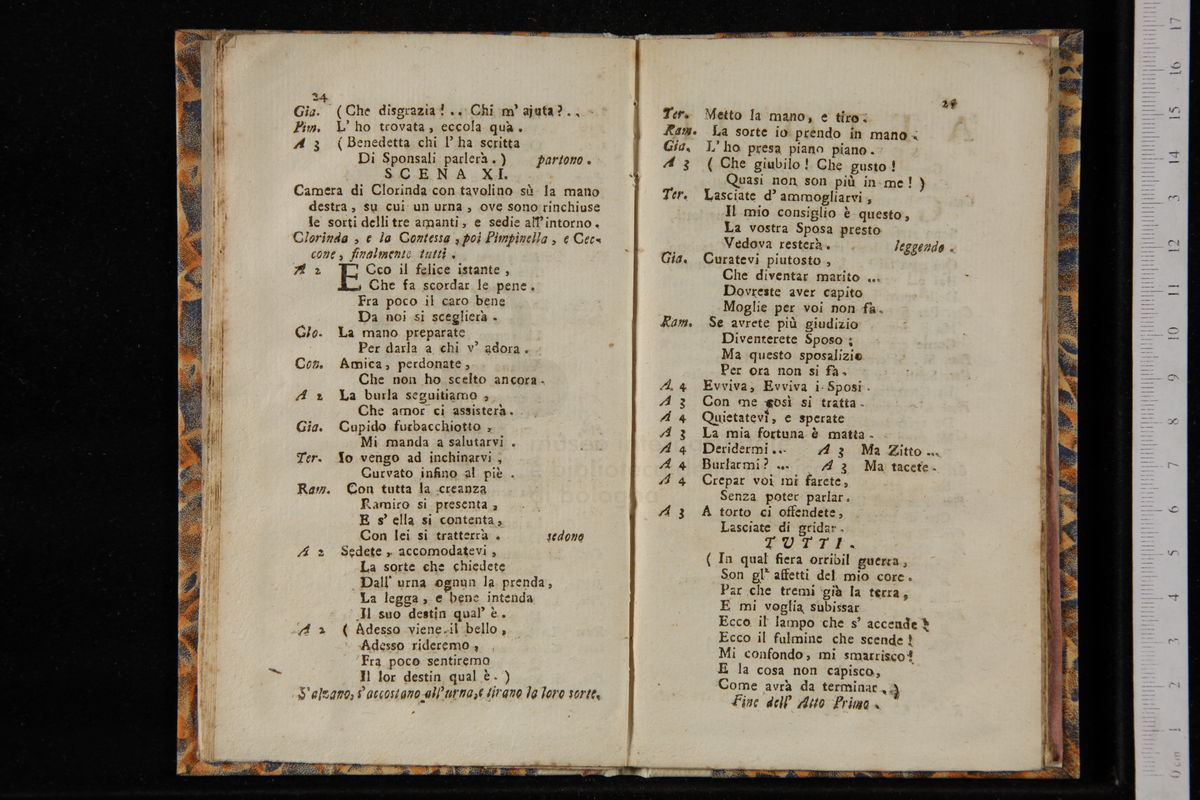 24
Gia. (Che disgrazia! .. Chi m' ajuta? ..
Pim. L' ho trovata, eccola quà.
A 3 (Benedetta chi l' ha scritta
Di Sponsali parlerà.) partono.
SCENA XI.
Camera di Clorinda con tavolino sù la mano
destra, su cui un urna, ove sono rinchiuse
le sorti delli tre amanti, e sedie all'intorno.
Clorinda, e la Contessa, poi Pimpinella, e Cec-
cone, finalmente tutti.
A 2 ECco il felice istante,
Che fa scordar le pene.
Fra poco il caro bene
Da noi si sceglierà.
Clo. La mano preparate
Per darla a chi v' adora.
Con. Amica, perdonate,
Che non ho scelto ancora.
A 2 La burla seguitiamo,
Che amor ci assisterà.
Gia. Cupido furbacchiotto,
Mi manda a salutarvi.
Ter. Io vengo ad inchinarvi,
Curvato infino al piè.
Ram. Con tutta la creanza
Ramiro si presenta,
E s' ella si contenta,
Con lei si tratterrà. sedono
A 2 Sedete, accomodatevi,
La sorte che chiedete
Dall' urna ognun la prenda,
La legga, e bene intenda
Il suo destin qual' è.
A 2 (Adesso viene il bello,
Adesso rideremo,
Fra poco sentiremo
Il lor destin qual è.)
S'alzano, s'accostano all'urna, e tirano la loro sorte.
25
Ter. Metto la mano, e tiro.
Ram. La sorte io prendo in mano.
Gia. L' ho presa piano piano.
A 3 (Che giubilo! Che gusto!
Quasi non son più in me!)
Ter. Lasciate d' ammogliarvi,
Il mio consiglio è questo,
La vostra Sposa presto
Vedova resterà. leggendo.
Gia. Curatevi piutosto,
Che diventar marito ...
Dovreste aver capito
Moglie per voi non fà.
Ram. Se avrete più giudizio
Diventerete Sposo;
Ma questo sposalizio
Per ora non si fà.
A 4 Evviva, Evviva i Sposi.
A 3 Con me così si tratta.
A 4 Quietatevi, e sperate
A 3 La mia fortuna è matta.
A 4 Deridermi... A 3 Ma Zitto ...
A 4 Burlarmi? ... A 3 Ma tacete.
A 4 Crepar voi mi farete,
Senza poter parlar.
A 3 A torto ci offendete,
Lasciate di gridar.
TUTTI.
(In qual fiera orribil guerra,
Son gl' affetti del mio core.
Par che tremi già la terra,
E mi voglia subissar
Ecco il lampo che s' accende!
Ecco il fulmine che scende!
Mi confondo, mi smarrisco!
E la cosa non capisco,
Come avrà da terminar.)
Fine dell' Atto Primo.